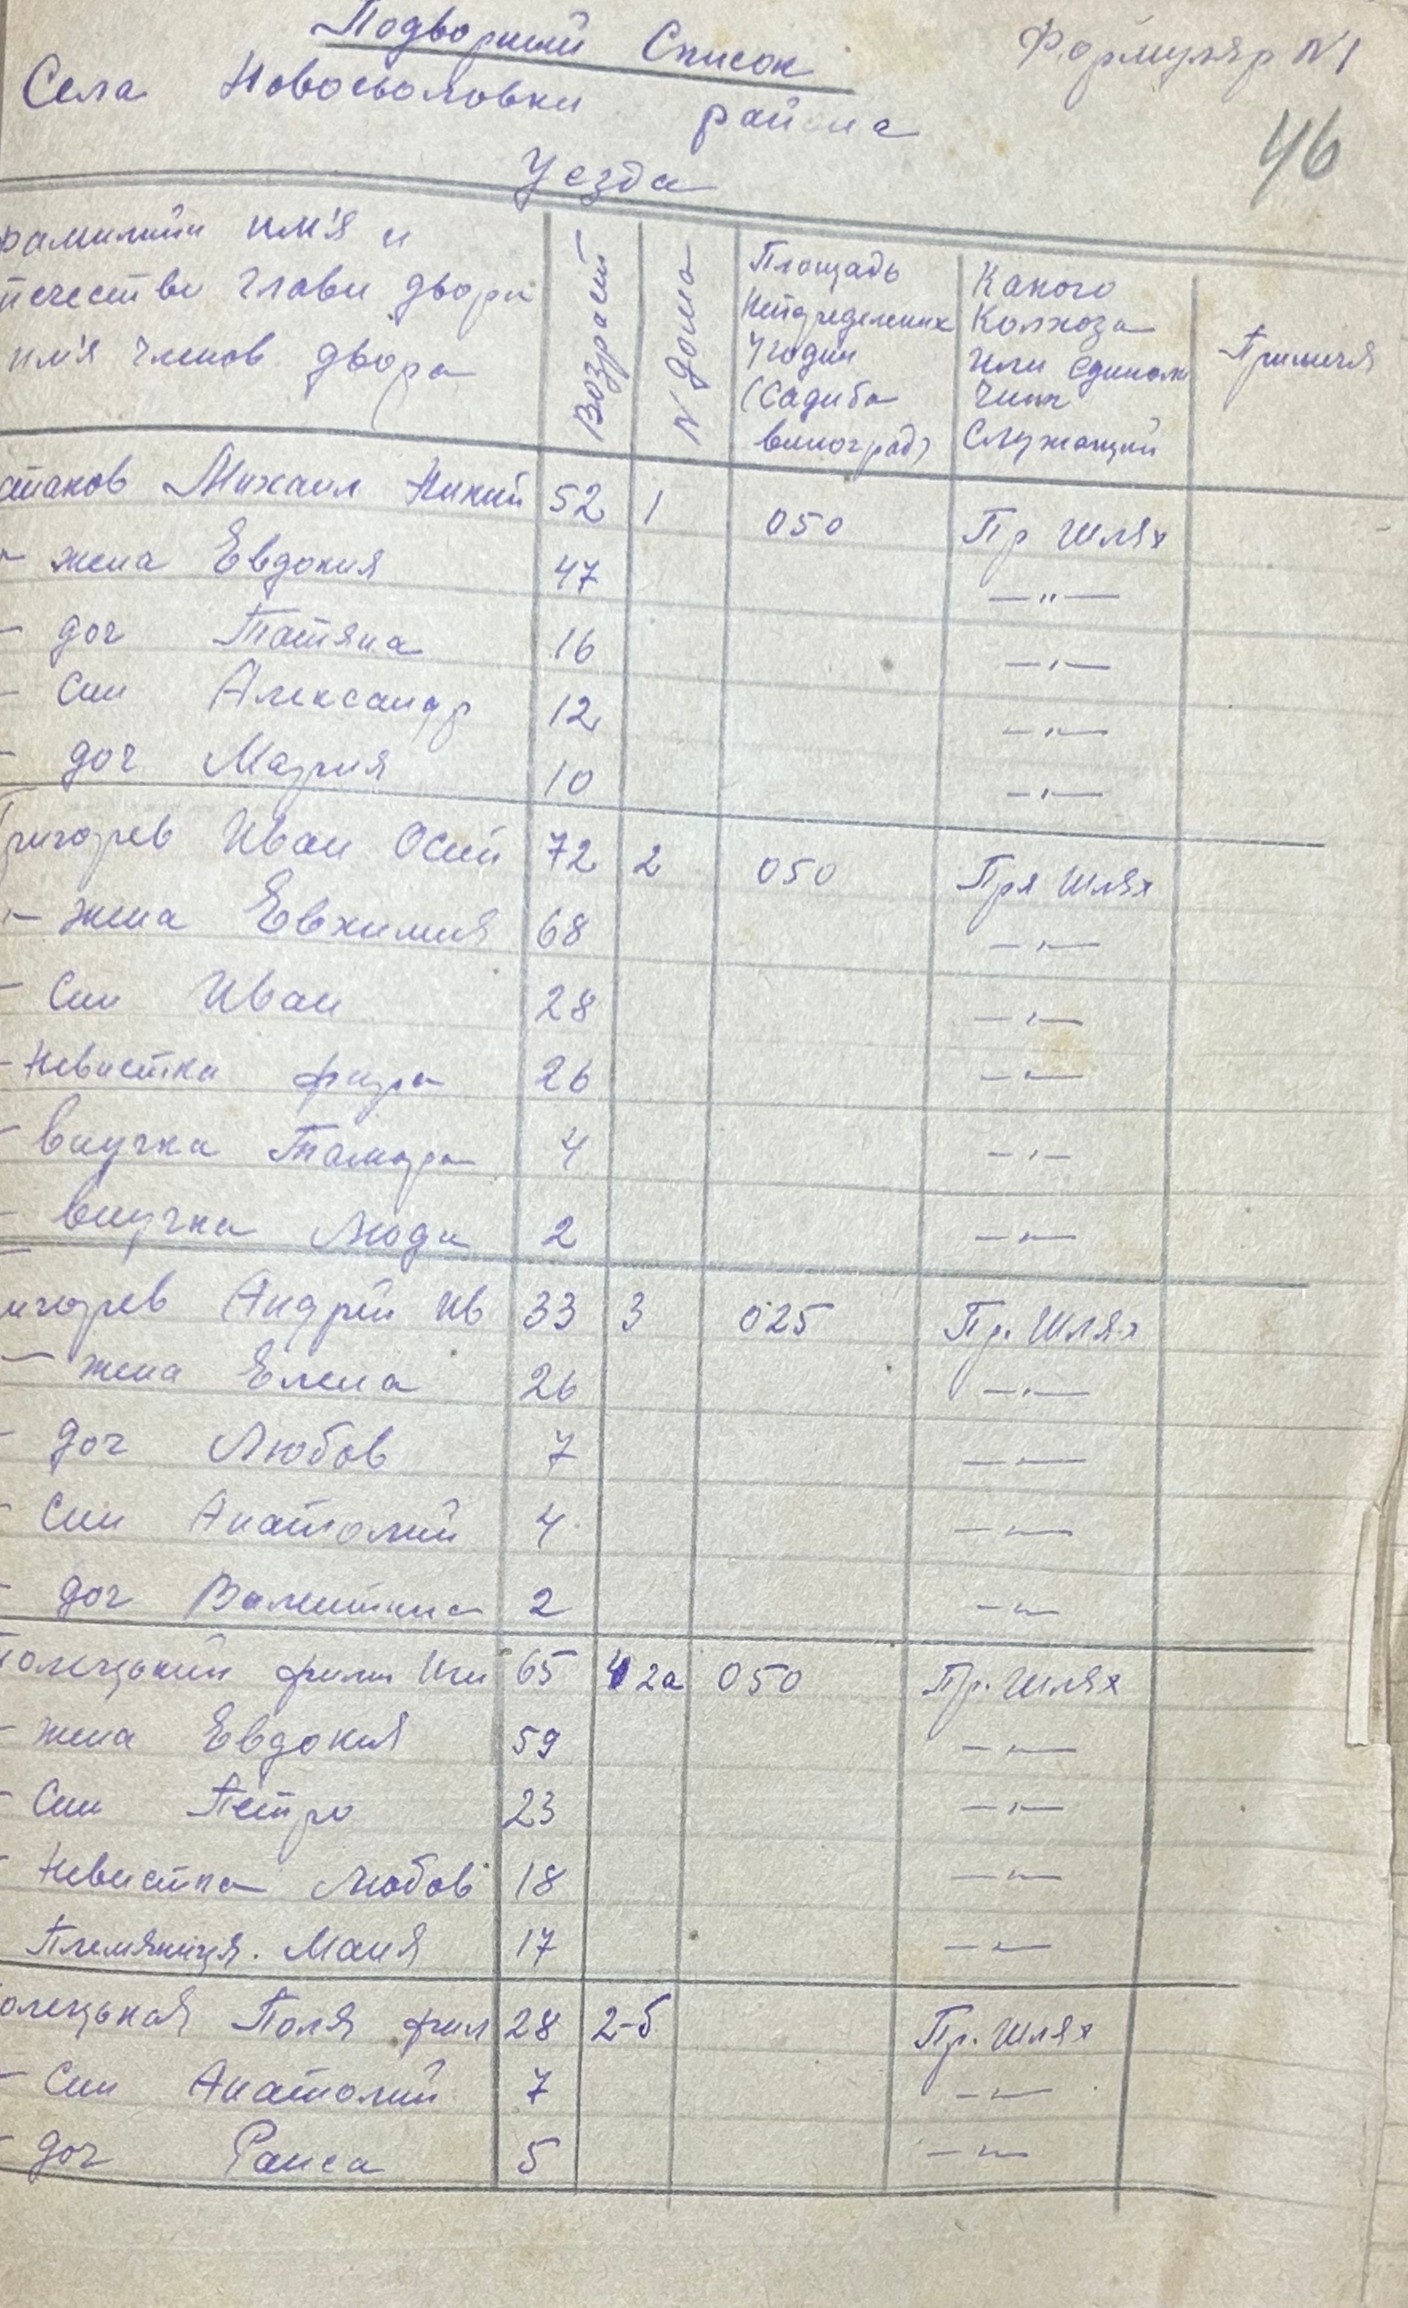 Подворний Список
Формуляр N1
Села Новосьоловки района
46
Уезда
фамилийи им'я и
течество глави двора
им'я членов двора
Возраст
N дома
Площадь
Угодий
(Садиба
виноград)
Какого
Колхоза
или единоли
чник
Служащий
Примечя
Михаил Никит 52 1 050 Пр Шлях
— жена Евдокия 47 —"—
— доч Татяна 16 —"—
— Син Александр 12 —"—
— доч Мария 10 —"—
Григорев Иван Осип 72 2 050 Пря Шлях
— жена Евхимия 68 —"—
— Син Иван 28 —"—
— Невистка фира 26 —"—
— Внучка Тамара 4 —"—
— Внучка Люда 2 —"—
игорев Андрей Ив 33 3 025 Пр. Шлях
— жена Елена 26 —"—
— доч Любов 7 —"—
— Син Анатолий 4 —"—
— доч Валентина 2 —"—
фили 65 2а 050 Пр. Шлях
— жена Евдокия 59 —"—
— Син Петро 23 —"—
— Невистка Любов 18 —"—
Племяниця. Маня 17 —"—
Поля фил 28 2-б Пр. Шлях
— Син Анатолий 7 —"—
— доч Раиса 5 —"—